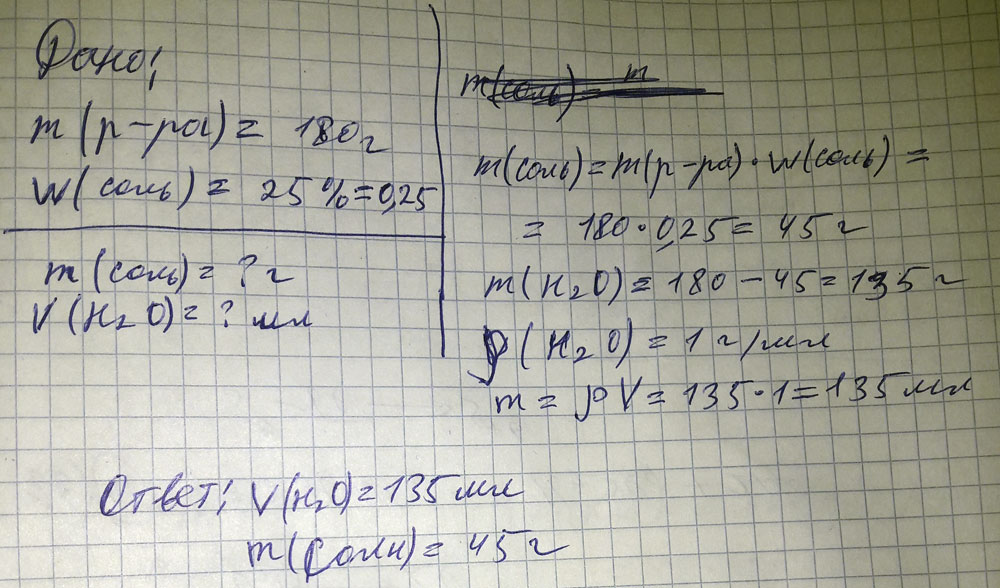 Дано:
m(р-ра) = 180г
W(соль) = 25% = 0,25
m(соль) = ? г
V(H₂O) = ? мл
m(соль) = m
m(соль) = m(р-ра) · W(соль) =
= 180 · 0,25 = 45 г
m(H₂O) = 180 - 45 = 135 г
ρ(H₂O) = 1 г/мл
m = ρV = 135 · 1 = 135 мл
Ответ: V(H₂O) = 135 мл
m(соли) = 45 г